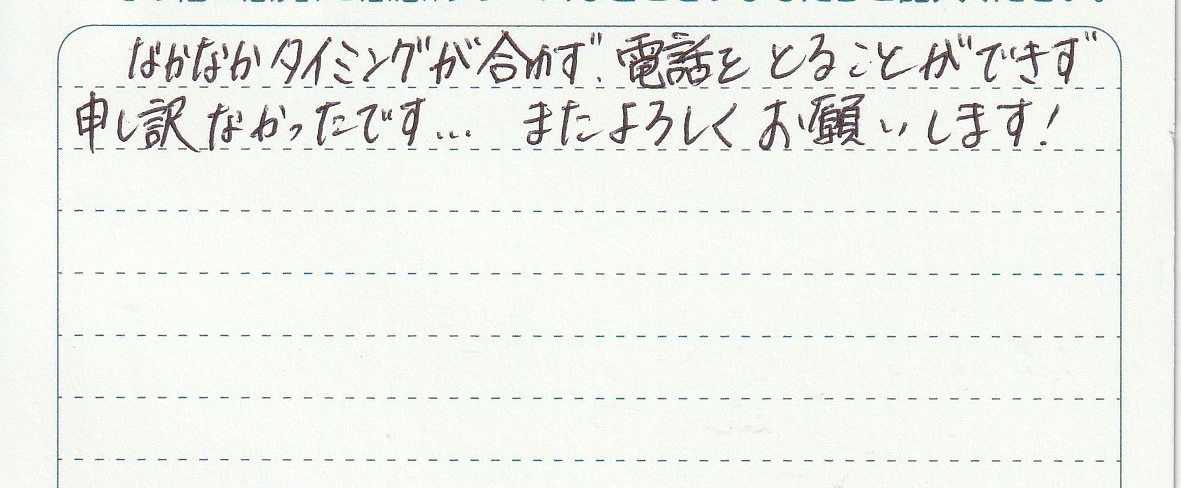 なかなかタイミングが合わず、電話をとることができず
申し訳なかったです… またよろしくお願いします!